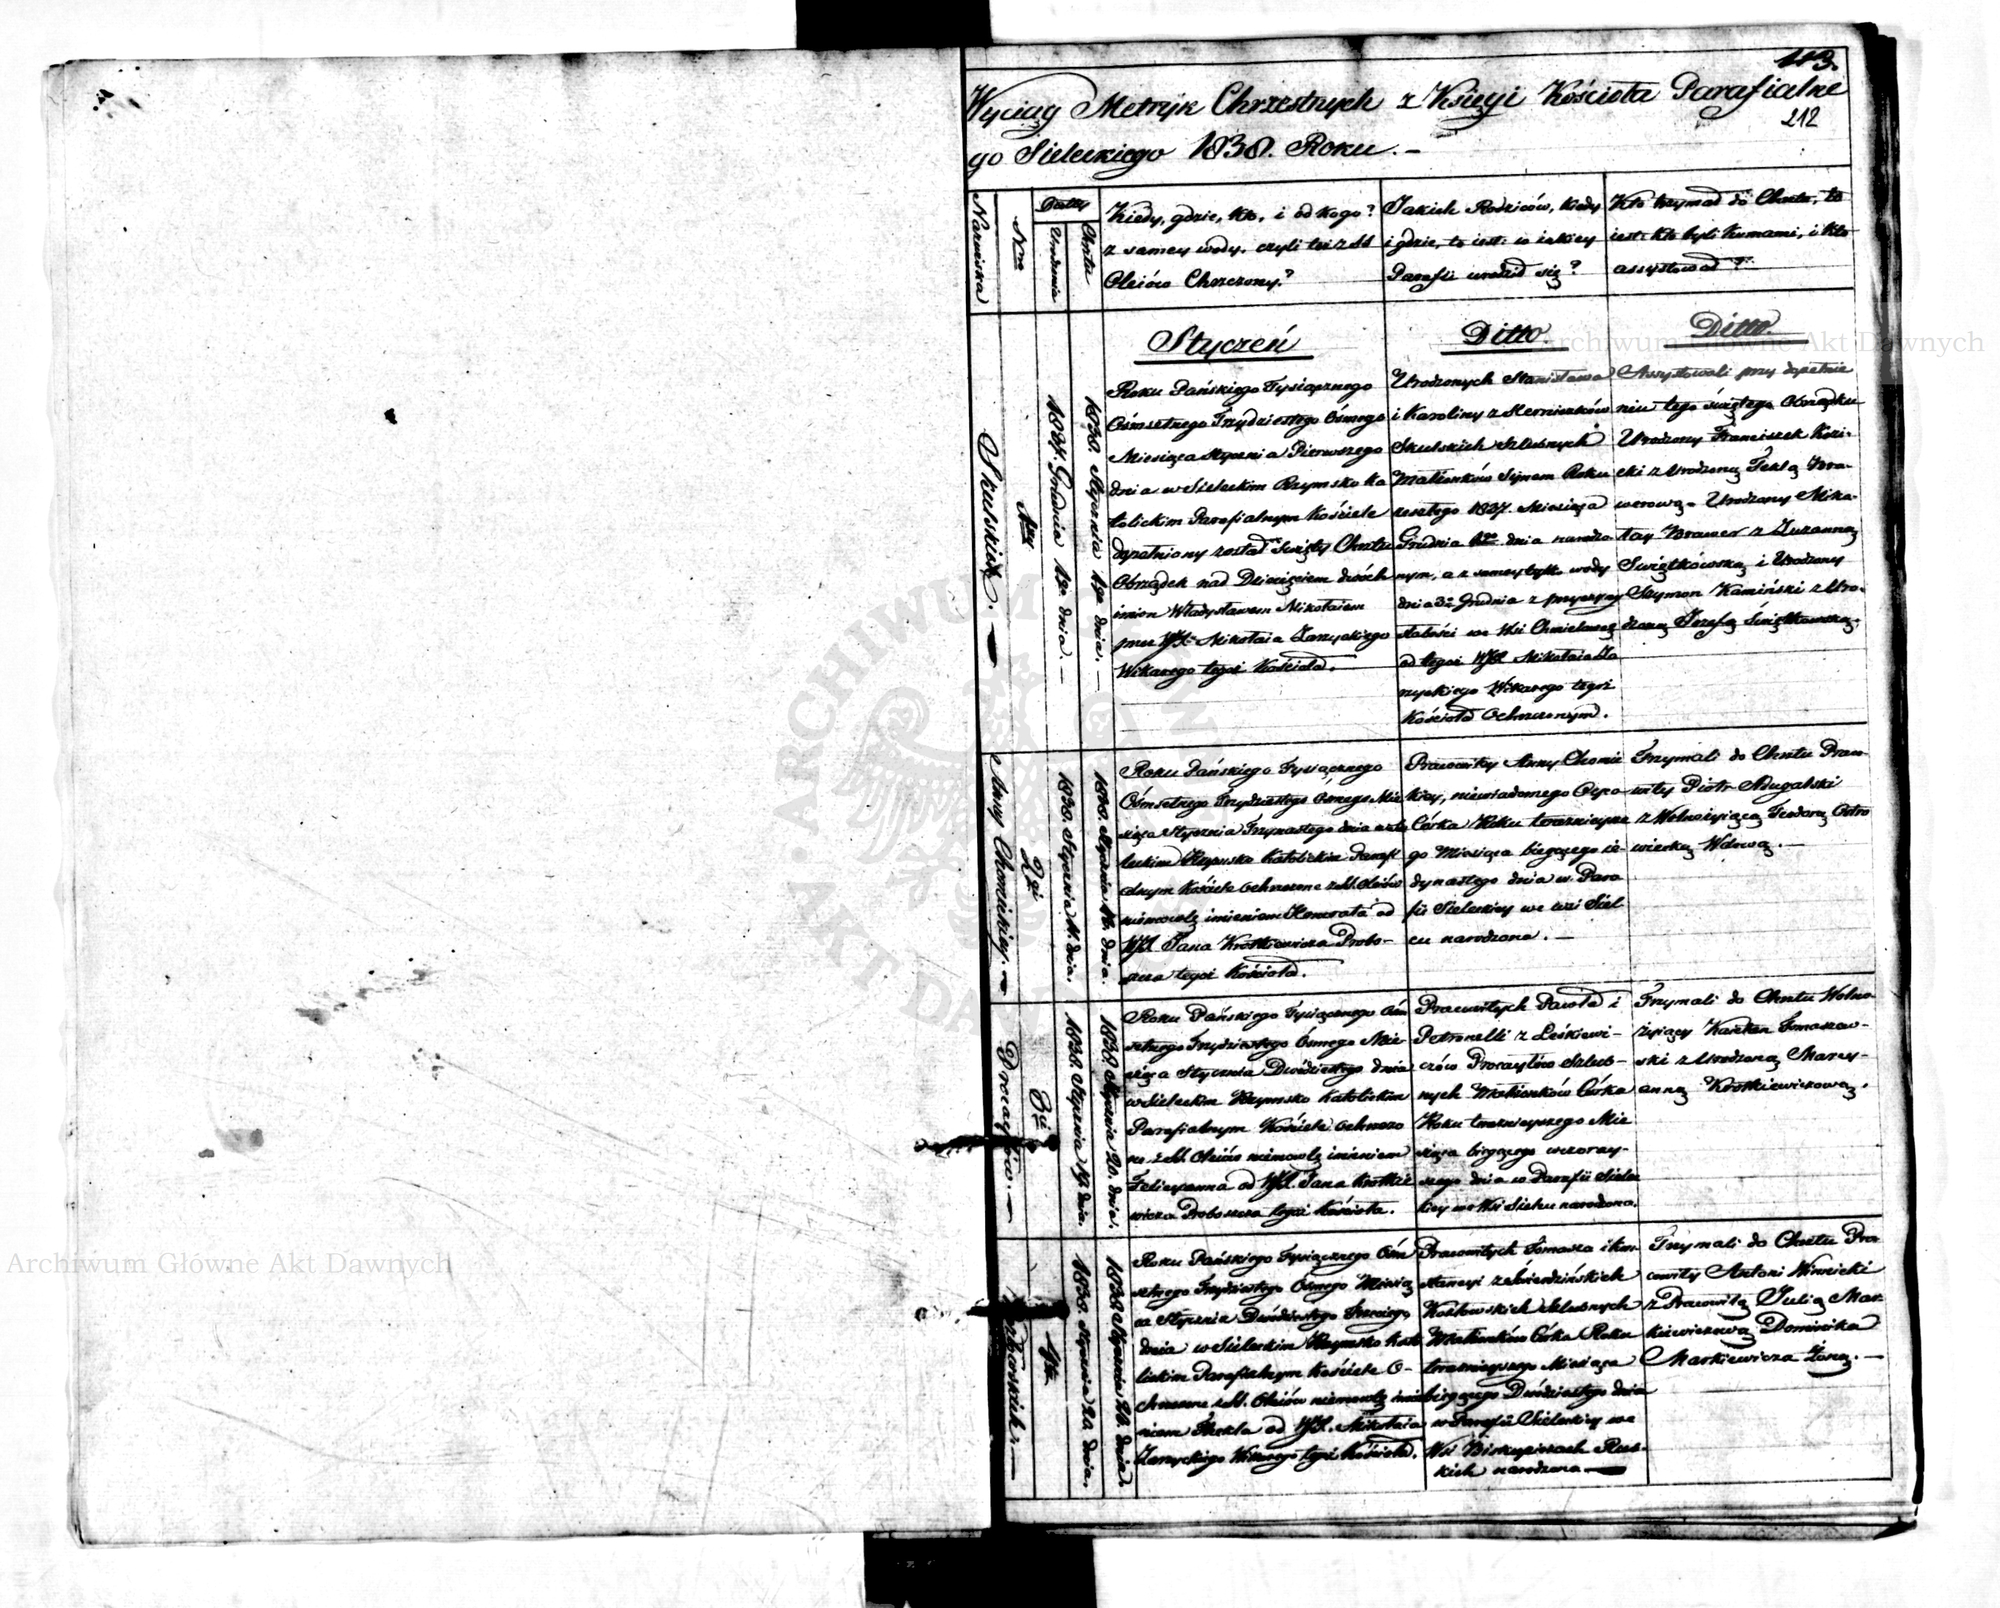 113.
Wyciąg Metryk Chrzestnych z Księgi Kościoła Parafialne
212
go Sieleckiego 1838. Roku. –
Nazwiska
Nro
Datty
Urodzenia
Chrztu
Kiedy, gdzie, kto, i od kogo?
z samey wody, czyli też z SS
Oleiów Chrzczony?
Jakich Rodziców, kiedy
i gdzie, to iest: w iakiey
Parafii urodził się?
Kto trzymał do Chrztu, to
iest: kto byli Kumami, i kto
assystował?
Styczeń
Ditto
Ditto.
Skulskich. —
1wy
1837. Grudnia 1go dnia. —
1838. Stycznia 1go dnia. —
Roku Pańskiego Tysiącznego
Ośmsetnego Trzydziestego Ósmego
Miesiąca Stycznia Pierwszego
dnia w Sieleckim Rzymsko Ka
tolickim Parafialnym Kościele
dopełniony został Święty Chrztu
Obrządek nad Dziecięciem dwóch
imion Władysławem Mikołaiem
przez WJX. Mikołaia Zarzyckiego
Wikarego tegoż Kościoła.
Urodzonych Stanisława
i Karoliny z
Skulskich Szlubnych
Małżonków Synem Roku
zeszłego 1837. Miesiąca
Grudnia 1go dnia narodzo
nym, a z samey tylko wody
dnia 3o Grudnia z przyczyny
słabości we Wsi
od tegoż WJX. Mikołaia Za
rzyckiego Wikarego tegoż
Kościoła Ochrzczonym.
Assystowali przy dopełnie
niu tego świętego Obrządku
Urodzony Franciszek Kozi-
cki z Urodzoną Teklą
Urodzony Miko-
łay Brawer z Zuzanną
Świętkowską i Urodzony
Szymon Kamiński z Uro-
dzoną Józefą Świętkowską.
Anny Chomickiey. —
2gi
1838. Stycznia 11. dnia.
1838. Stycznia 13. dnia.
Roku Pańskiego Tysiącznego
Ośmsetnego Trzydziestego Ósmego Mie
siąca Stycznia Trzynastego dnia w Sie
leckim Rzymsko Katolickim Parafi
alnym Kościele ochrzczone z SS. Oleiów
niemowlę imieniem Honorata od
WJX. Jana Krotkiewicza Probo-
szcza tegoż Kościoła.
Pracowitey Anny Chomic
kiey, niewiadomego Oyca
Córka Roku teraznieysze
go Miesiąca bieżącego ie-
dynastego dnia w Para
fii Sieleckiey we wsi Siel
cu narodzona. —
Trzymali do Chrztu Praco-
wity Piotr
z Wolnożyiącą Teodorą Ostro
wieską Wdową. —
Procaylów. —
3ci
1838. Stycznia 19. dnia.
1838 Stycznia 20. dnia.
Roku Pańskiego Tysiącznego Ośm
setnego Trzydziestego Ósmego Mie-
siąca Stycznia Dwódziestego dnia
w Sieleckim Rzymsko Katolickim
Parafialnym Kościele ochrzczo
ne z SS. Oleiów niemowlę imieniem
Felicyanna od WJX. Jana Krotkie
wicza Proboszcza tegoż Kościoła.
Pracowitych Pawła i
Petronelli z Leśkiewi-
czów Procaylów Szlub-
nych Małżonków Córka
Roku teraznieyszego Mie
siąca bieżącego wczoray-
szego dnia w Parafii Sielec
kiey we Wsi Sielcu narodzona.
Trzymali do Chrztu Wolno-
żyiący Kaietan Tomaszew-
ski z Urodzoną Marcy-
anną Krotkiewiczową.
4ty
1838. Stycznia 20. dnia.
1838 Stycznia 23. dnia.
Roku Pańskiego Tysiącznego Ośm
setnego Trzydziestego Ósmego Miesią
ca Stycznia Dwódziestego Trzeciego
dnia w Sieleckim Rzymsko Kato
lickim Parafialnym Kościele O-
chrzczone z SS. Oleiów niemowlę imie
niem Tekla od WJX. Mikołaia
Zarzyckiego Wikarego tegoż Kościoła.
Pracowitych Tomasza i Kon-
stancyi z Świerdzińskich
Kozłowskich Szlubnych
Małżonków Córka Roku
teraznieyszego Miesiąca
bieżącego Dwódziestego dnia
w Parafii Sieleckiey we
Wsi Biskupicach Rus-
kich narodzona —
Trzymali do Chrztu Pra-
cowity Antoni Winnicki
z Pracowitą Julią Mar-
kiewiczową Dominika
Markiewicza Żoną. —
Archiwum Główne Akt Dawnych
Archiwum Główne Akt Dawnych